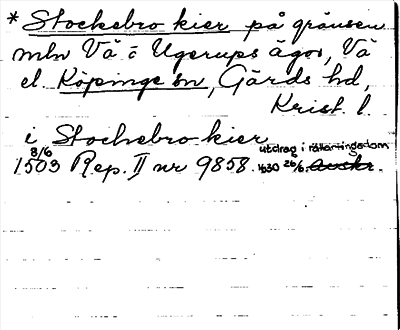 * Stockebro kier på gränsen
mln Vä o Ugerups ägor, Vä
el. Köpinge sn, Gärds hd,
Krist. l.
i Stochebro kier
8/6 utdrag i rättartingsdom
1503 Rep. II nr 9858. 1530 26/6. Avskr.